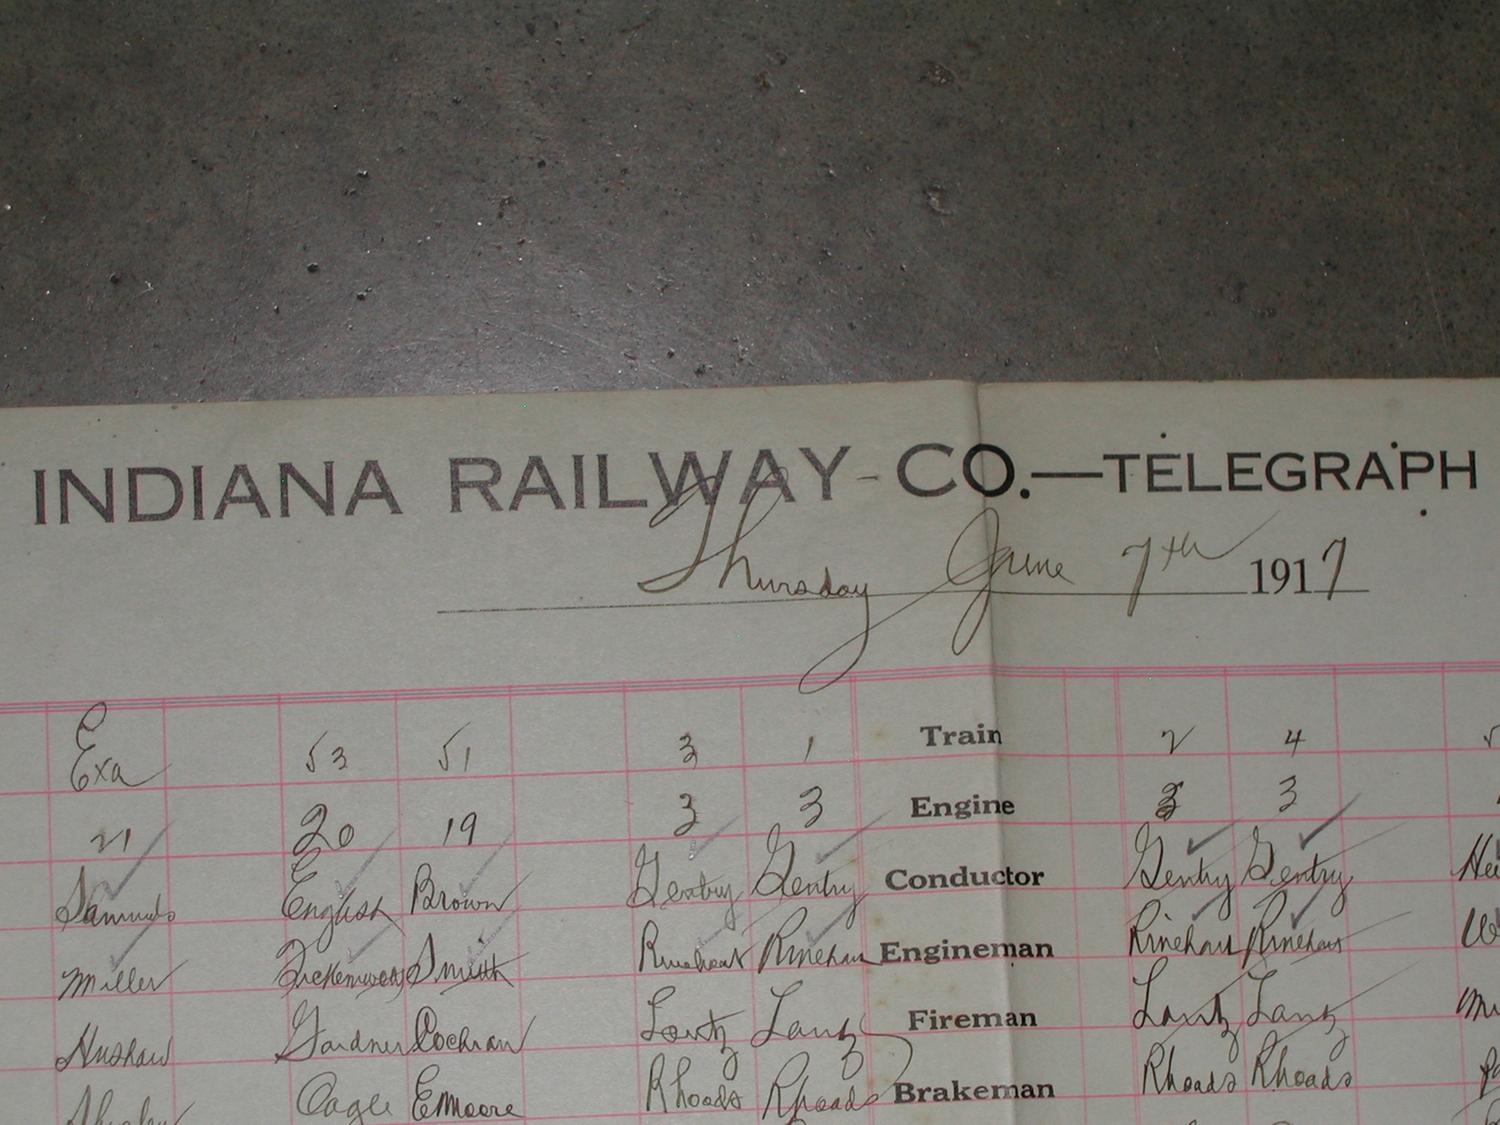 INDIANA RAILWAY-CO.—TELEGRAPH
Thursday June 7th 1917
Exa 53 51 3 1 Train 2 4
21 20 19 3 3 Engine 3 3
Samuels English Brown Gentry Gentry Conductor Gentry Gentry
Miller Smith Rinehart Rinehart Engineman Rinehart Rinehart
Hushaw Gardner Cochran Lantz Lantz Fireman Lantz Lantz
Cagle EMoore Rhoads Rhoads Brakeman Rhoads Rhoads